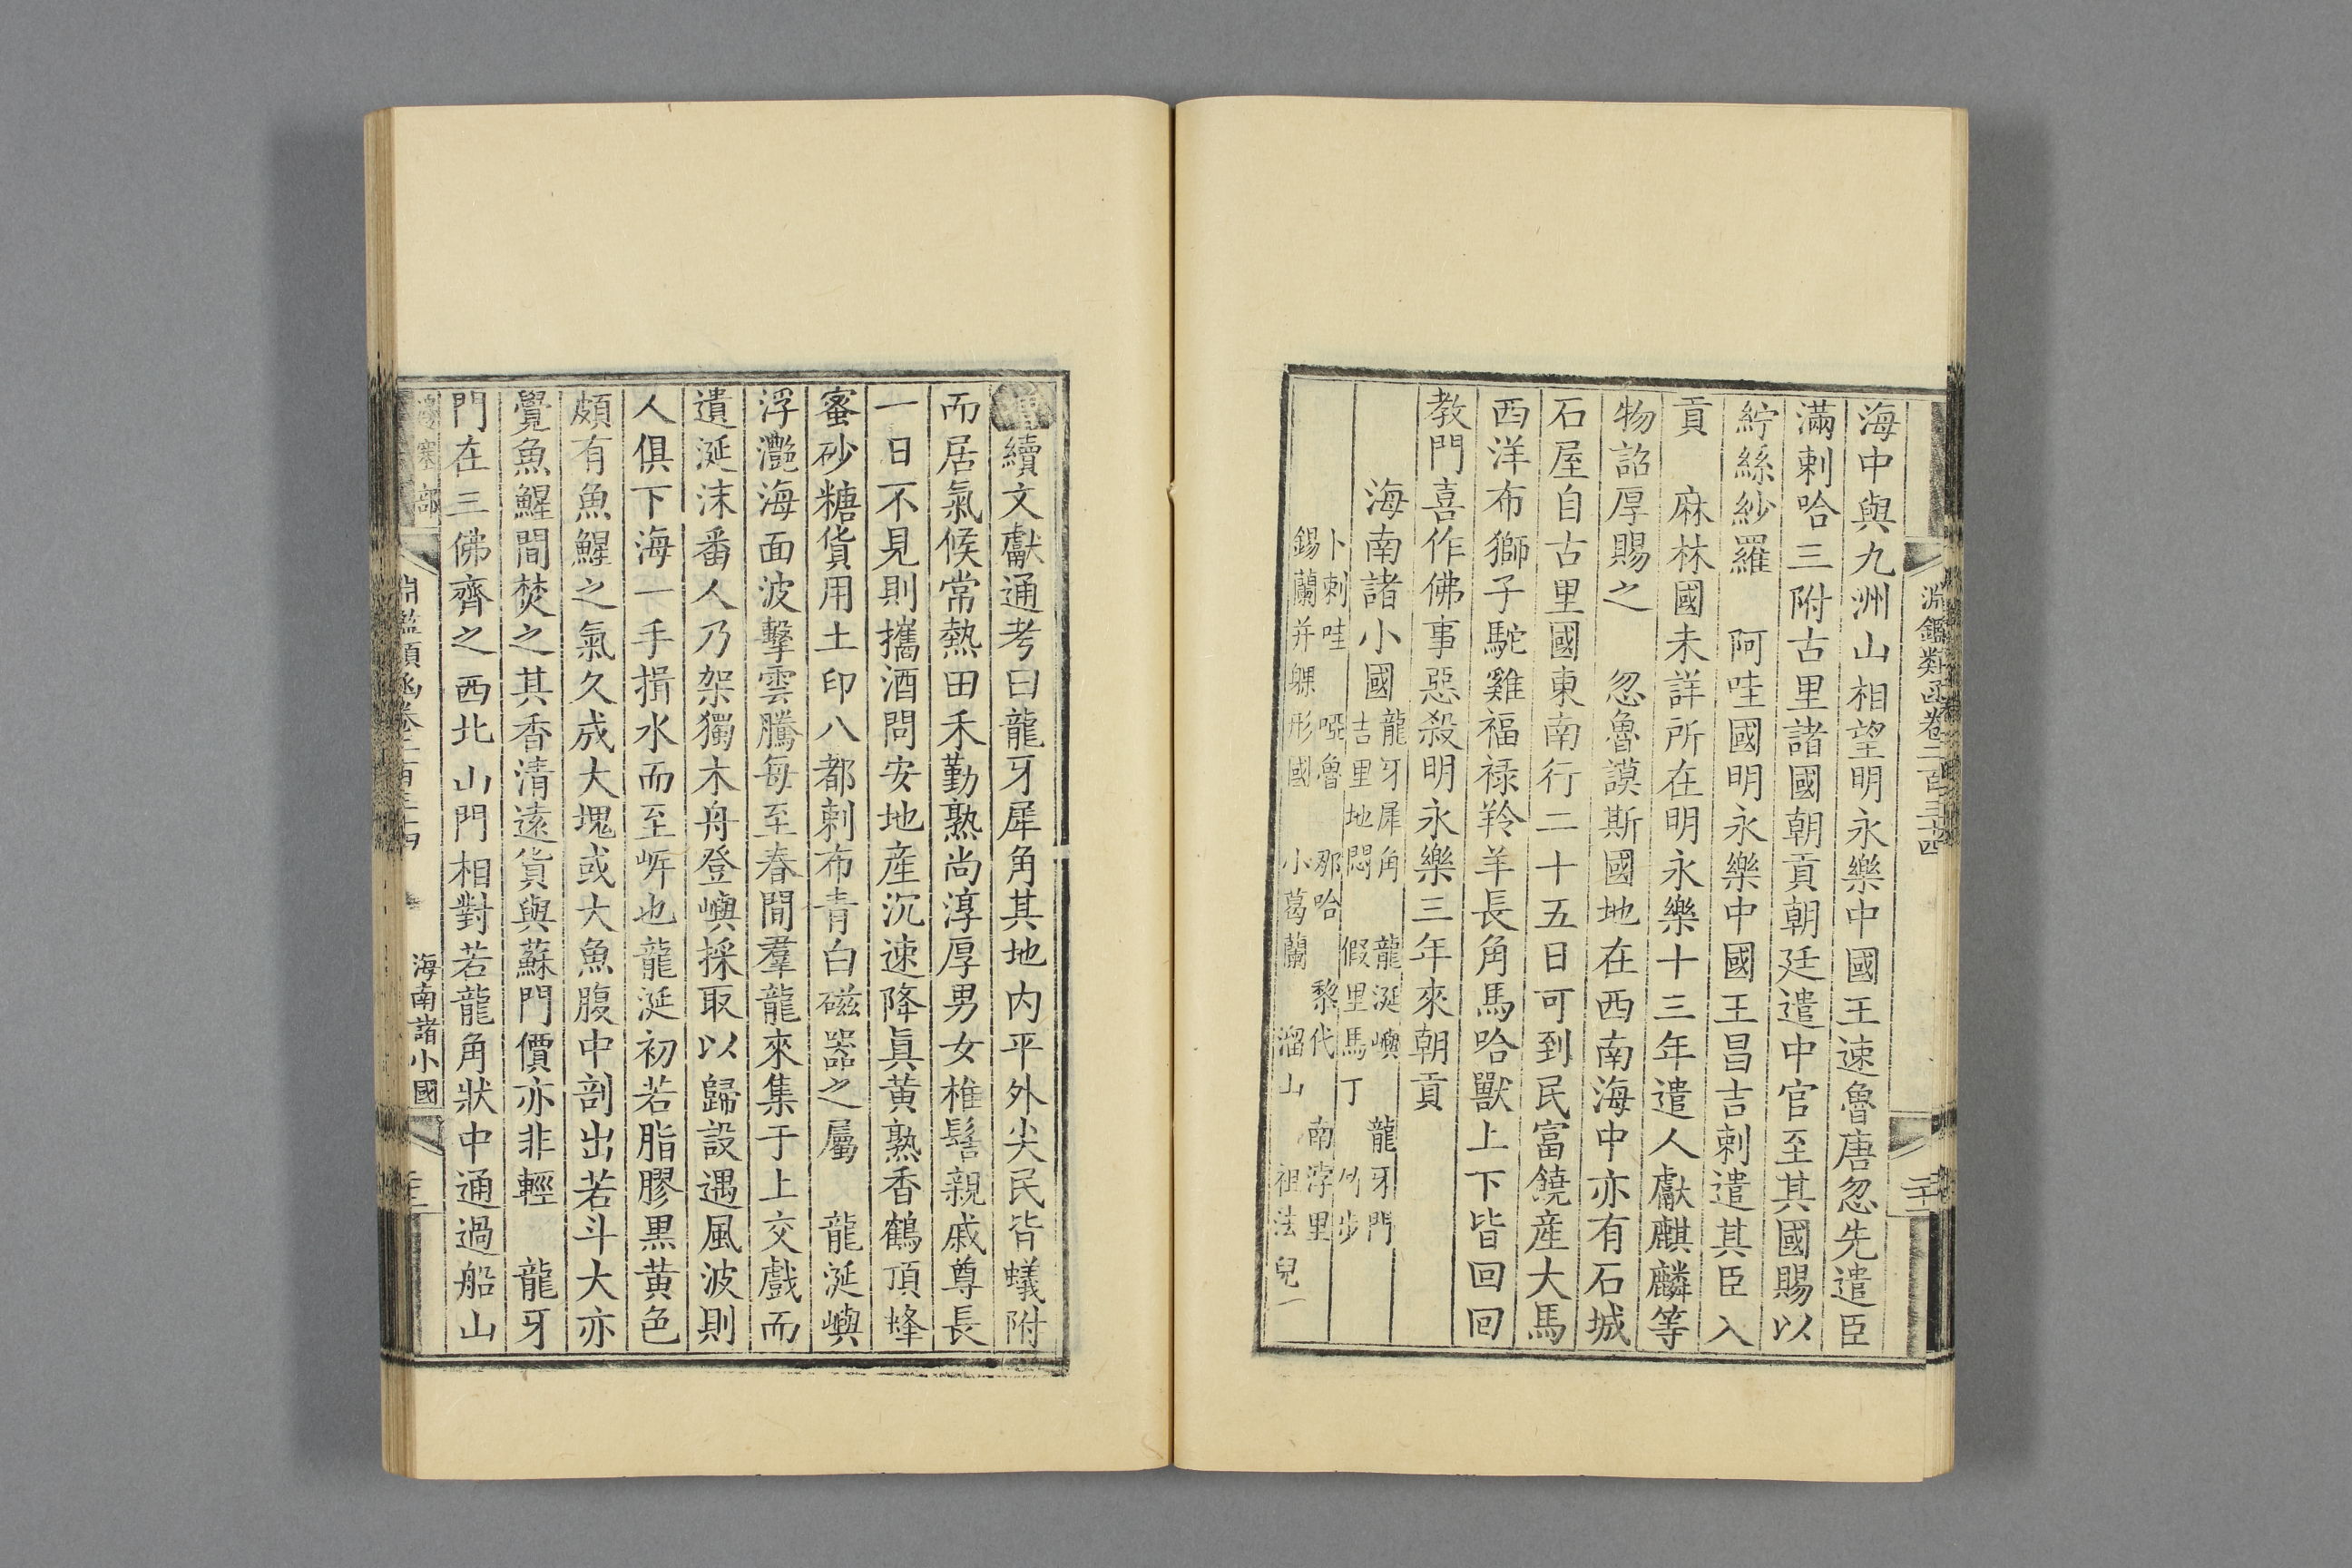 淵鑑類函卷二百三十四
海中與九洲山相望明永樂中國王速魯唐忽先遣臣
滿剌哈三附古里諸國朝貢朝廷遣中官至其國賜以
紵絲紗羅　阿哇國明永樂中國王昌吉剌遣其臣入
貢　麻林國未詳所在明永樂十三年遣人獻麒麟等
物詔厚賜之　忽魯謨斯國地在西南海中亦有石城
石屋自古里國東南行二十五日可到民富饒産大馬
西洋布獅子駝雞福祿羚羊長角馬哈獸上下皆回回
教門喜作佛事惡殺明永樂三年來朝貢
海南諸小國
龍牙犀角　龍涎嶼　龍牙門
吉里地悶　假里馬丁
卜剌哇　啞魯　那哈　黎代　南浡里
錫蘭并躶形國　小葛蘭　溜山　祖法兒
續文獻通考曰龍牙犀角其地内平外尖民皆蟻附
而居氣候常熱田禾勤熟尚淳厚男女椎髻親戚尊長
一日不見則攜酒問安地産沉速降眞黄熟香鶴頂蜂
蜜砂糖貨用土印八都剌布青白磁器之屬　龍涎嶼
浮灔海面波擊雲騰每至春間羣龍來集于上交戲而
遺涎沫番人乃架獨木舟登嶼採取以歸設遇風波則
人俱下海一手揖水而至岸也龍涎初若脂膠黒黄色
頗有魚鯹之氣久成大塊或大魚腹中剖出若斗大亦
覺魚鯹間焚之其香清遠貨與蘇門價亦非輕　龍牙
門在三佛齊之西北山門相對若龍角狀中通過船山
邊塞部
淵鑑類函卷二百三十四
海南諸小國